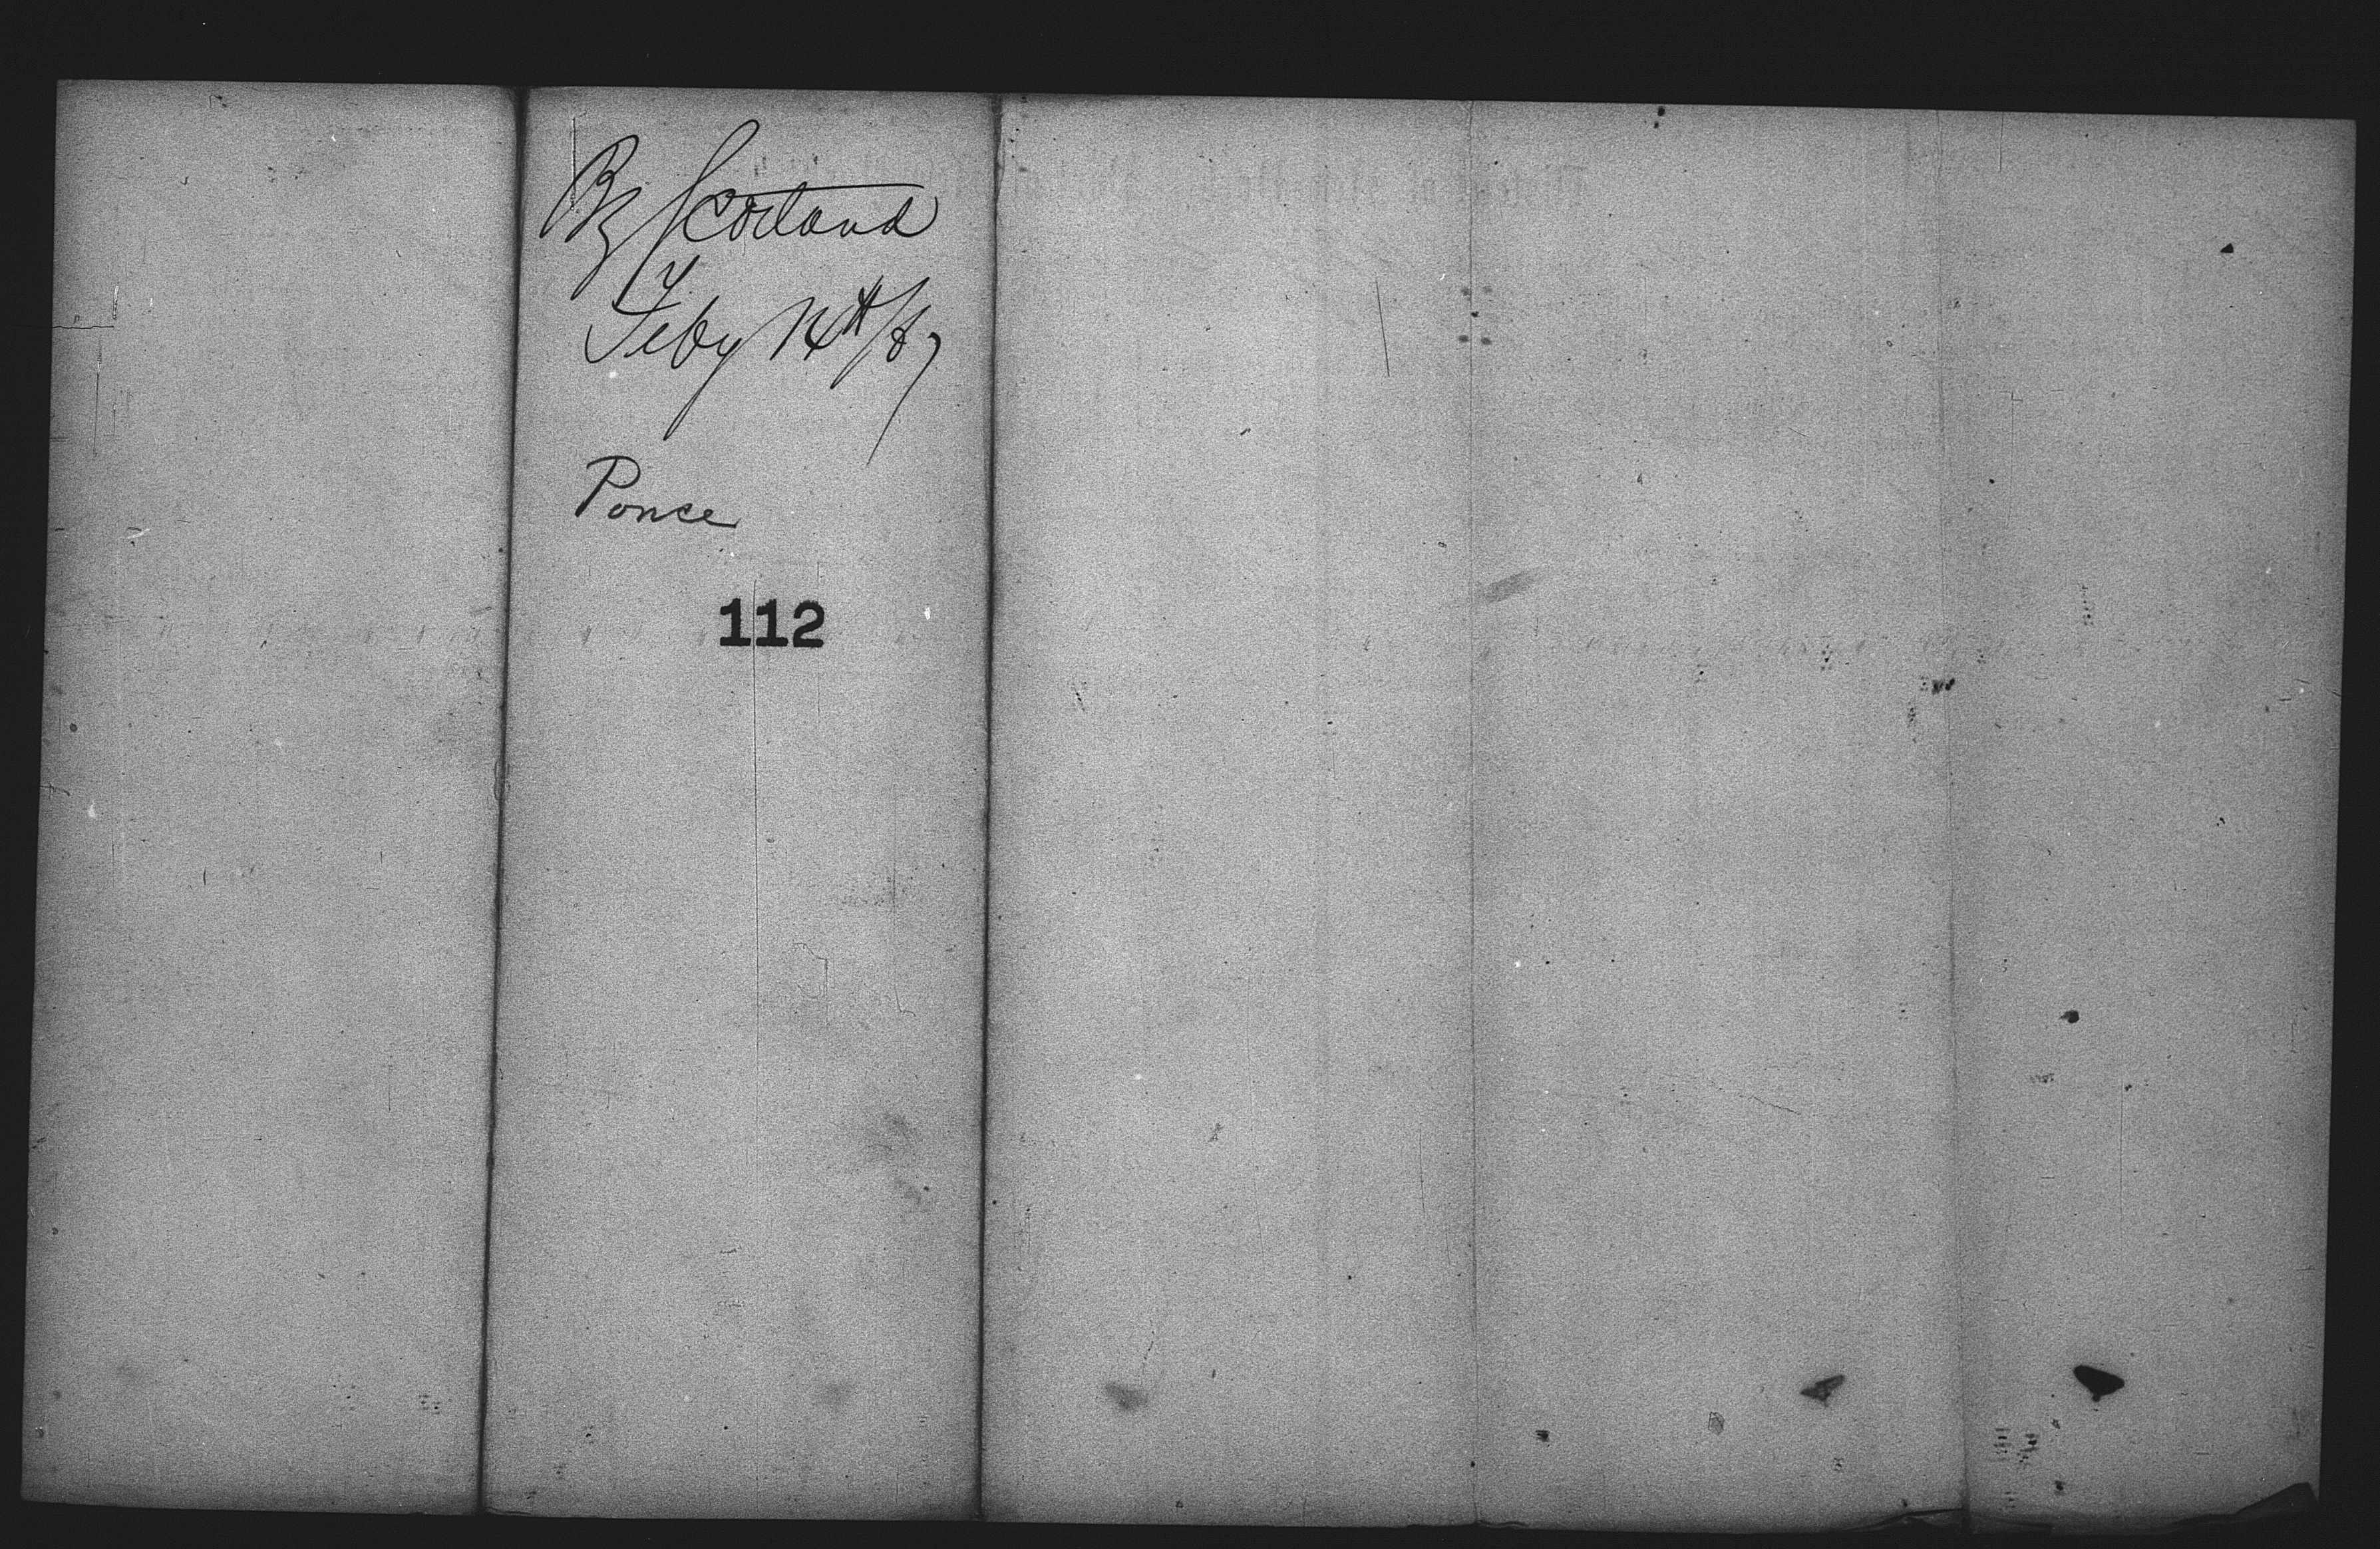 Bg Scotland
Feby 14th/87
Ponce
112